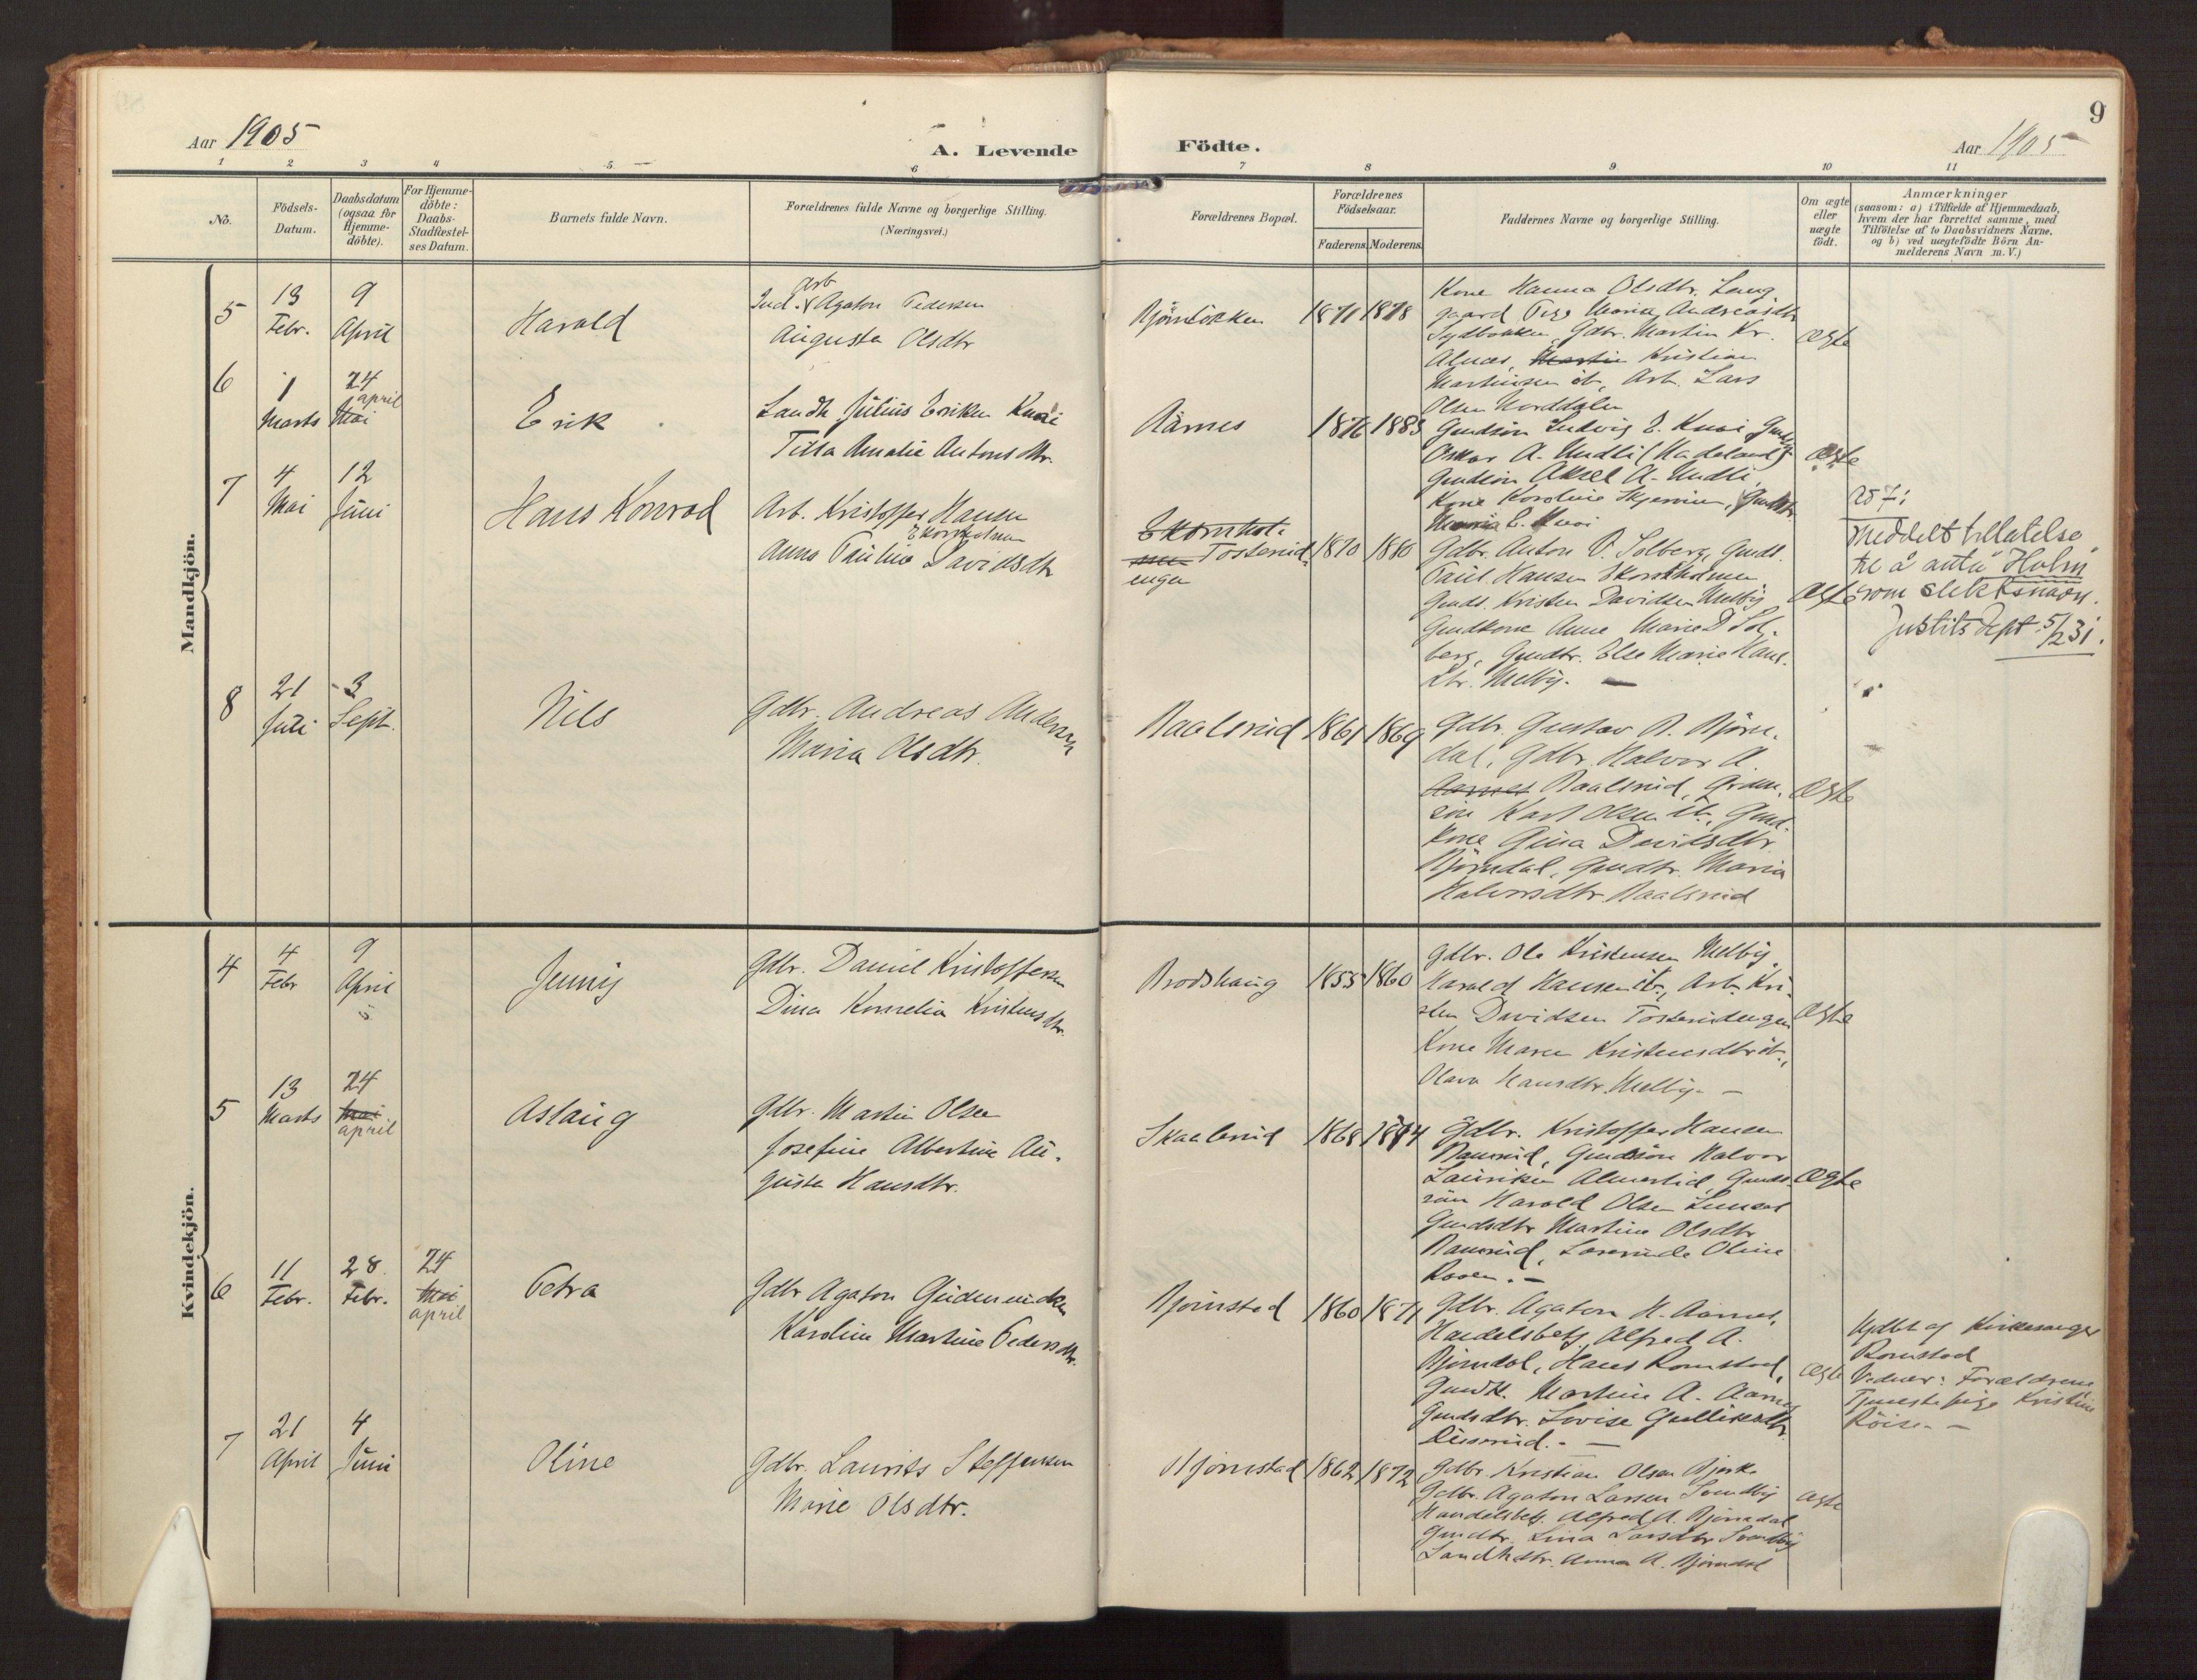 9
Aar 1905
A. Levende
Födte.
Aar 1905
1
2
3
4
5
6
7
8
9
10
11
No.
Födsels-
Datum.
Daabsdatum
(ogsaa for
Hjemme-
döbte).
For Hjemme-
döbte:
Daabs-
Stadfæstel-
ses Datum.
Barnets fulde Navn.
Forældrenes fulde Navne og borgerlige Stilling.
(Næringsvei.)
Forældrenes Bopæl.
Forældrenes
Födselsaar.
Faderens.
Moderens.
Faddernes Navne og borgerlige Stilling.
Om ægte
eller
uægte
födt.
Anmærkninger
(saasom: a) i Tilfælde af Hjemmedaab,
hvem der har forrettet samme, med
Tilföielse af to Daabsvidners Navne,
og b) ved uægtefödte Börn An-
melderens Navn m. V.)
Mandkjön.
5
13
Febr.
9
April
Harald
Arb
Ind. Agaton Pedersen
Augusta Olsdtr
1871
1878
Kone Hanna Olsdtr. Lang
gaard Pige Maria Andreasdtr
Sydbakken, Gdbr. Martin Kr.
Alnæs, Martin Kristian
Martinsen ib., Arb. Lars
Olsen Norddalen
ægte
6
1
Marts
24
april
Mai
Erik
Landh Julius Eriksen Knai
Tilla Amalie Antonsdtr.
Aarnes
1876
1883
Gmdsön Ludvig E. Knai
Oskar A. Undli (Hadeland)
Gmdsön Aksel A. Undli,
Kone Karoline
Maria E. Knai
ægte
7
4
Mai
12
Juni
Hans Konrad
Arb. Kristoffer Hansen
Ekornholmen
Anna Pauline Davidsdtr
Ekornhol-
men Tosterud-
engen
1870
1880
Gdbr. Anton P. Solberg, Gmds.
Paul Hansen Ekornholmen
Gmds. Kristen Davidsen Melby
Gmdkone Anne Marie D Sol-
berg, Gmdtr. Else Marie Hans-
dtr. Melby. —
ægte
ad 7:
Meddelt tillatelse
til å anta "Holm"
som slektsnavn.
Justits Dept. 5/2 31.
8
21
Juli
3
Sept.
Nils
Gdbr. Andreas Andersen
Maria Olsdtr.
Raalsrud
1861
1869
Gdbr. Gustav A. Björn-
dal, Gdbr. Halvor A.
Aarnes Raalsrud, Grdm.
sön Karl Olsen ib., Gmd.
kone Gina Davidsdtr
Björndal, Gmdtr. Maria
Halvorsdtr. Raalsrud
ægte
Kvindekjön.
4
4
Febr
9
April
Jenny
Gdbr. Daniel Kristoffersen
Dina Kornelia Kristensdtr.
Brodshaug
1855
1860
Gdbr. Ole Kristensen Melby
Harald Hansen ib., Arb. Kri-
sten Davidsen Tosterudengen
Kone Maren Kristensdtr ib.,
Olava Hansdtr. Melby. —
ægte
5
13
Marts
24
Mai
april
Aslaug
Gdbr. Martin Olsen
Josefine Albertine Au-
gusta Hansdtr.
Skaalsrud
1868
1874
Gdbr. Kristoffer Hansen
Ramsrud, Gmdsön Halvor
Lauriksen Almerlid, Gmds-
sön Harald Olsen
Gmdsdtr Martine Olsdtr
Ramsrud, Lærerinde Oline
Roven. —
ægte
6
11
Febr.
28
Febr.
24
Mai
april
Petra
Gdbr Agaton Gudmundsen
Karoline Martine Pedersdtr.
Bjørnstad
1860
1871
Gdbr. Agaton H. Aarnes,
Handelsbetj. Alfred A.
Björndal, Hans Romstad,
Gmdk. Martine A. Aarnes
Gmdsdtr. Lovise Gulliksdtr.
ægte
Hjdbt af Kirkesanger
Romstad
Vidner: Forældrene
Tjenestepige Kristine
Röise. —
7
21
April
4
Juni
Oline
Gdbr. Laurits Steffensen
Marie Olsdtr.
Bjørnstad
1862
1872
Gdbr. Kristian Olsen Bjerke
Gdbr. Agaton Larsen Svendby
Handelsbetj. Alfred A. Björndal
Gmdtr. Lina Larsdtr Svendby
Landhdtr. Anna A. Björndal
ægte